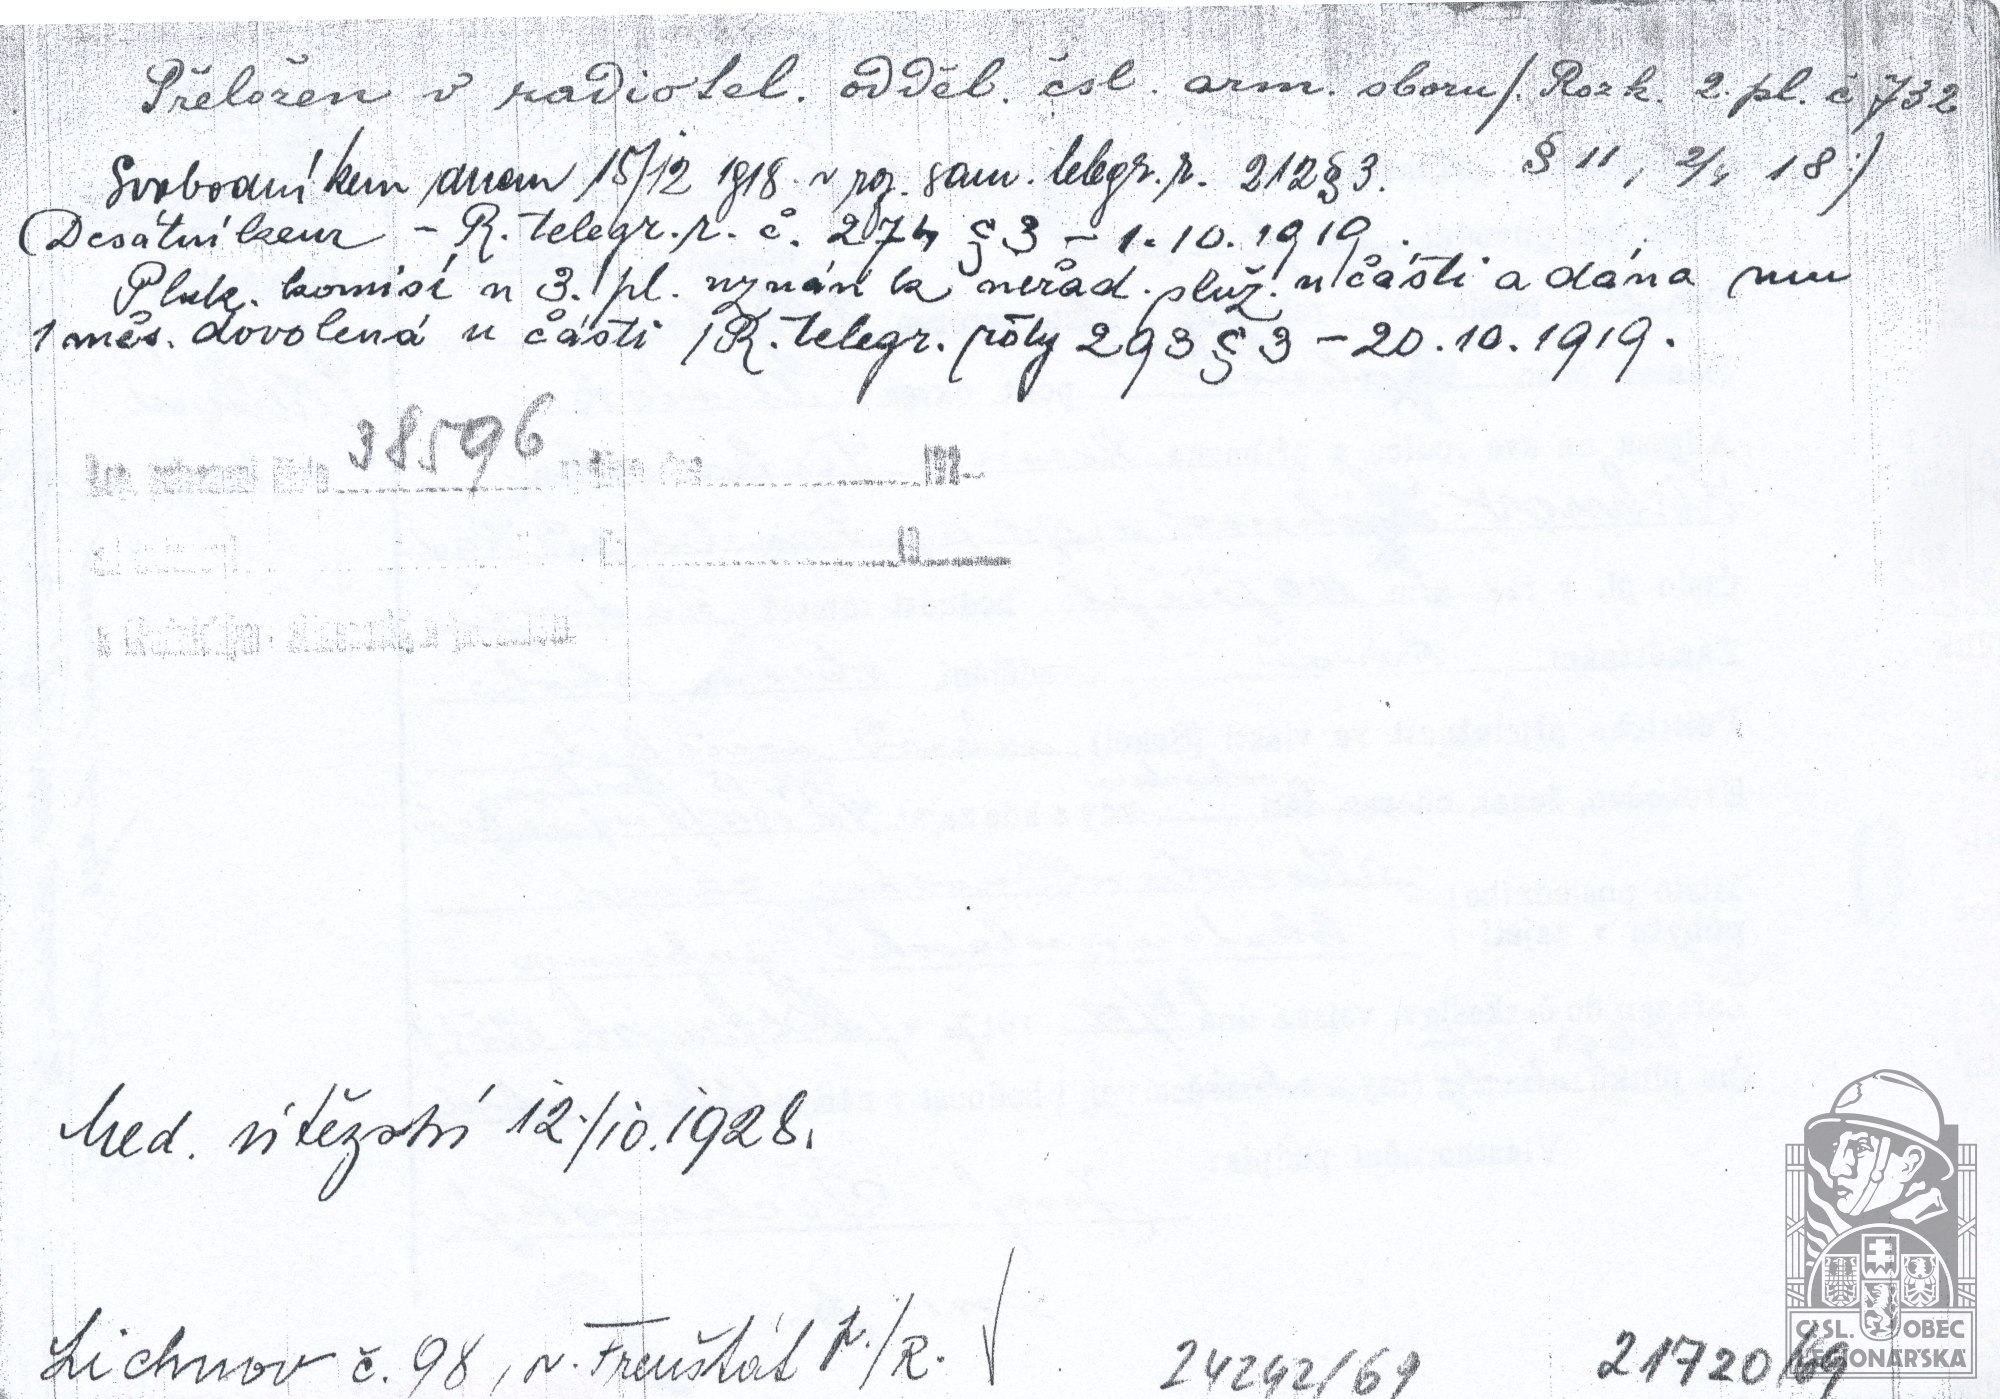 Přeložen v radiotel. odděl. čsl. arm. sboru /. Rozk. 2. pl. č 732
§ 11, 2/4 18:/
Svobodníkem dnem 15/12 1918. v roz. sam. telegr. r. 212 § 3.
(Desátníkem – R. telegr. r. č. 274 § 3 – 1.10.1919.
Pluk. komisí u 3. pl. uznán k neřad. služ. u části a dána mu
1 měs. dovolená u části /R. telegr. rôty 293 § 3 – 20.10.1919.
38596 192
19
Med. vítězství 12./10.1928.
Lichnov č. 98, v. Frenštát p./R.
24242/69 21720/69
ČSL. OBEC
LEGIONÁŘSKÁ